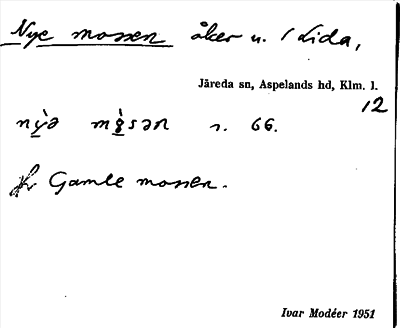 Nye mossen åker u. 1 Lida,
Järeda sn, Aspelands hd, Klm. l.
12
nỳə mòsən s. 66.
jfr Gamle mossen.
Ivar Modéer 1951